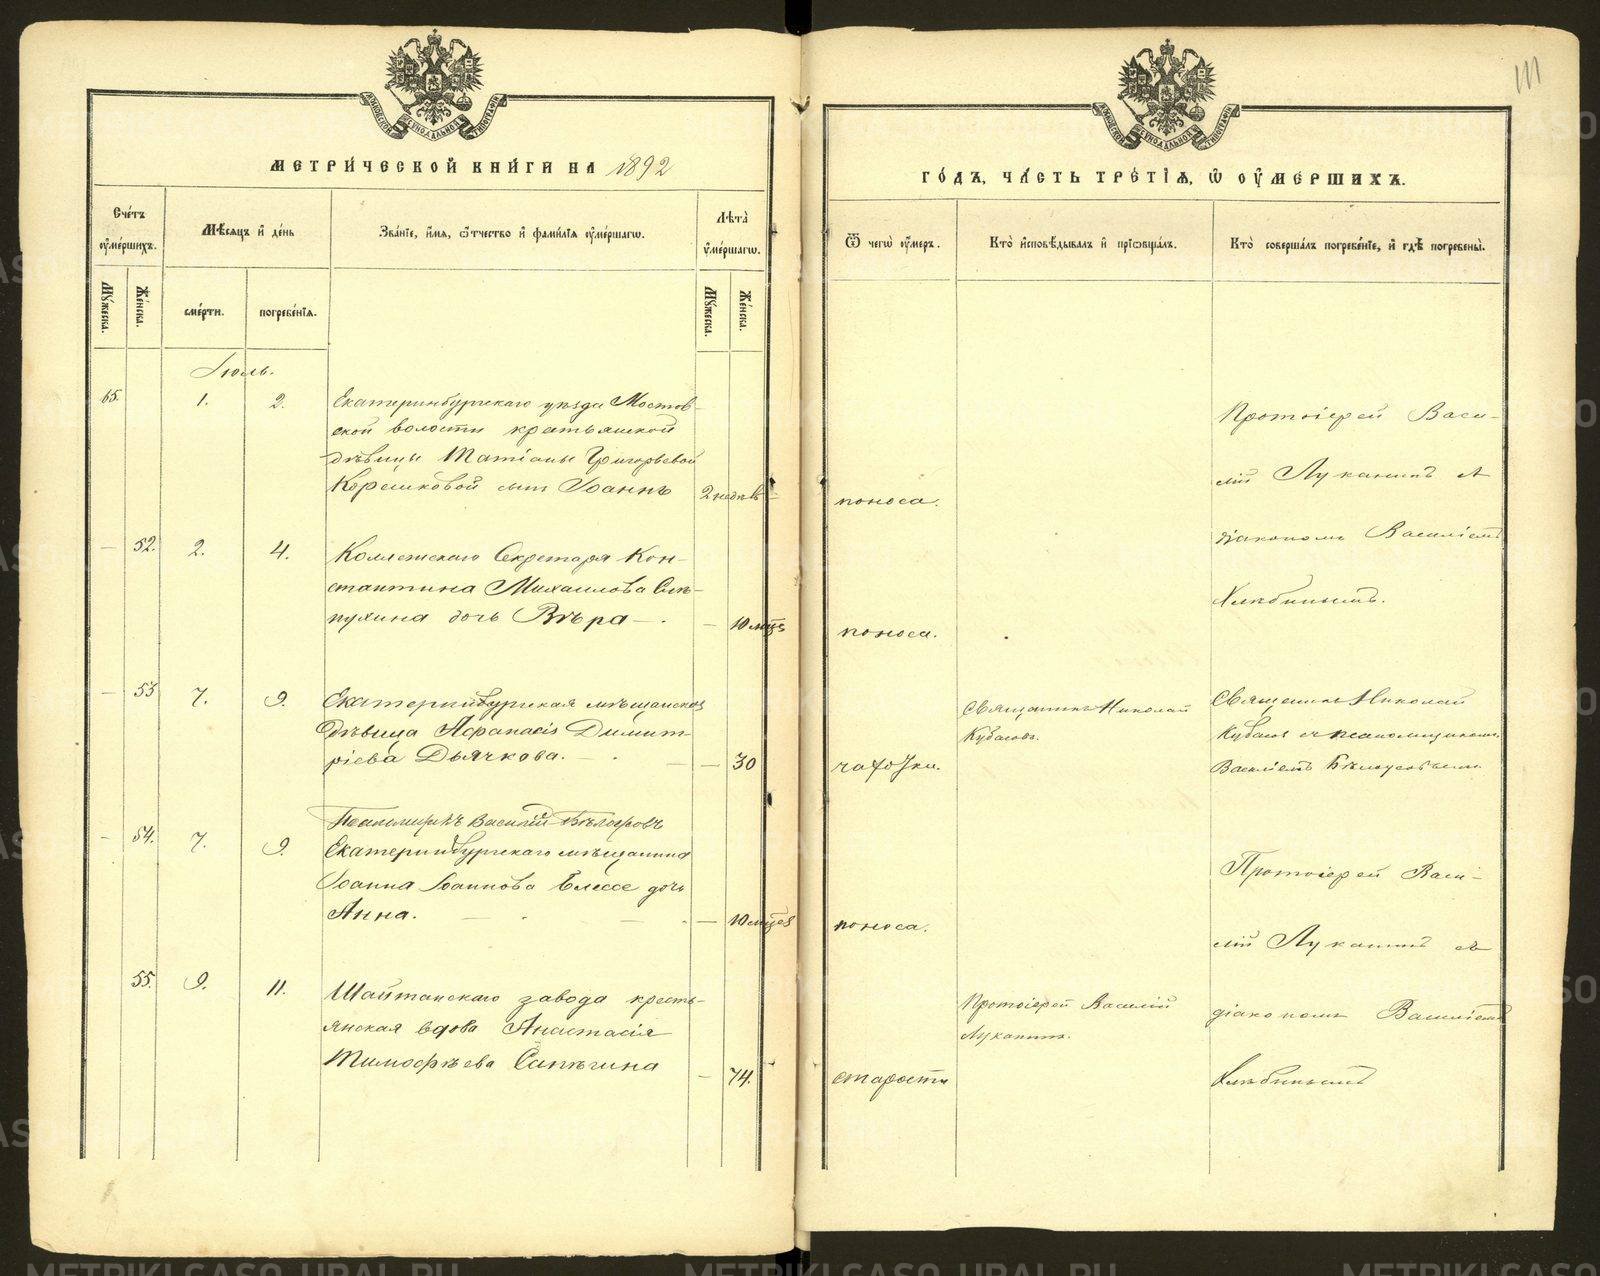 МЕТРИ́ЧЕСКОЙ КНИ́ГИ НА 1892
Сче́тъ ᲂу҆ме́ршихъ.
Мѣ́сяцъ и҆ де́нь
Зва́нїе, и҆́мя, ѻ҆́тчество и҆ фами́лїя ᲂу҆ме́ршагѡ.
Лѣ́та ᲂу҆ме́ршагѡ.
Му́жеска.
Же́нска.
сме́рти.
погребе́нїя.
Му́жеска.
Же́нска.
Іюль.
65. 1. 2. Екатеринбургскаго уѣзда Мостов-
ской волости крестьянской
дѣвицы Татіаны Григорьевой
Корелиновой сынъ Іоаннъ
2 недѣл.
— 52. 2. 4. Коллежскаго Секретаря Кон-
стантина Михаилова Сле-
пухина дочь Вѣра —.
— 10 мцев
— 53 7. 9. Екатеринбургская мѣщанская
дѣвица Афанасія Димит-
ріева Дьячкова.
— 30
Псаломщикъ Василій Бѣлоусовъ
— 54. 7. 9. Екатеринбургскаго мѣщанина
Іоанна Іоаннова дочь
Анна.
— 10 мцев
55. 9. 11. Шайтанскаго завода кресть-
янская вдова Анастасія
Тимофѣева Сапѣгина
— 74.
111
ГО́ДЪ, ЧА́СТЬ ТРЕ́ТЇЯ, Ѡ҆ ОУ҆МЕ́РШИХЪ.
Ѿ чегѡ̀ ᲂу҆́меръ.
Кто̀ и҆сповѣ́дывалъ и҆ прїѡбща́лъ.
Кто̀ соверша́лъ погребе́нїе, и҆ гдѣ̀ погребены̀.
поноса.
Протоіерей Васи-
лій Луканинъ съ
діакономъ Василіемъ
Хлѣбинымъ.
поноса.
чахотки.
Священникъ Николай
Кубасовъ.
Священникъ Николай
Кубасов съ псаломщикомъ
Василіемъ Бѣлоусовымъ
поноса.
Протоіерей Васи-
лій Луканинъ съ
діакономъ Василіемъ
Хлѣбинымъ
старости
Протоіерей Василій
Луканинъ.
METRIKI.GASO-URAL.RU